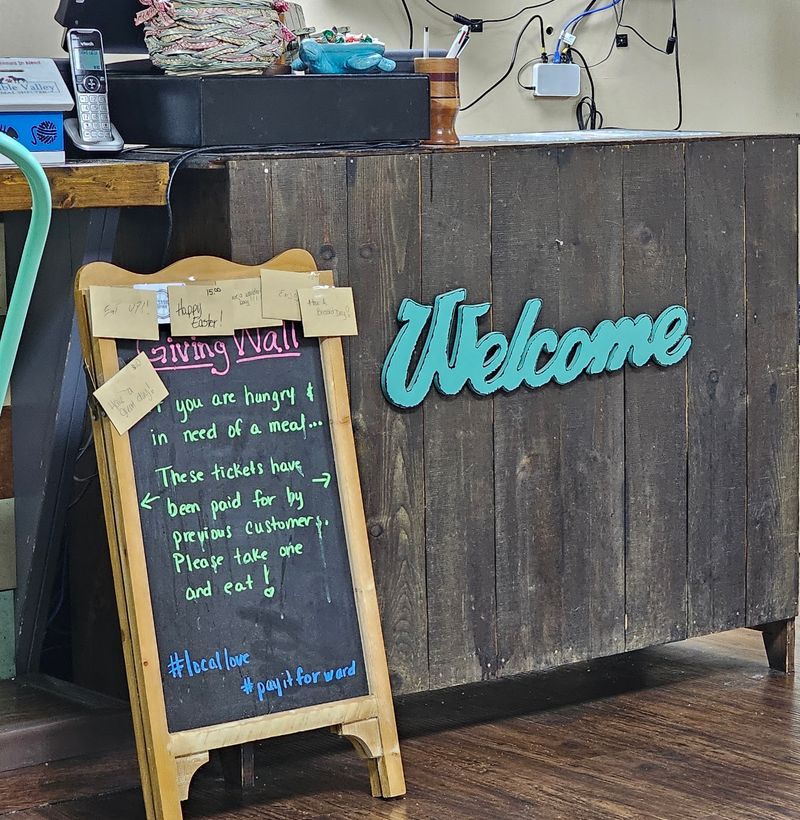 ble Valley
EAT UP!!
15.00
Happy
Easter!
Have A
Great Day!
Have a
Great day!
Giving Wall
f you are hungry &
in need of a meal...
These tickets have
been paid for by
previous customers.
Please take one
and eat!
#locallove
#payitforward
Welcome